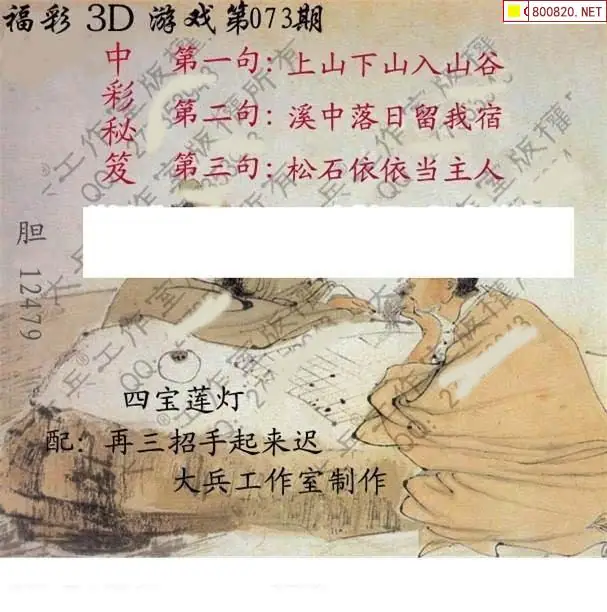 福彩 3D 游戏第073期
C800820.NET
中彩秘笈
第一句：上山下山入山谷
第二句：溪中落日留我宿
第三句：松石依依当主人
胆 12479
四宝莲灯
配：再三招手起来迟
大兵工作室制作